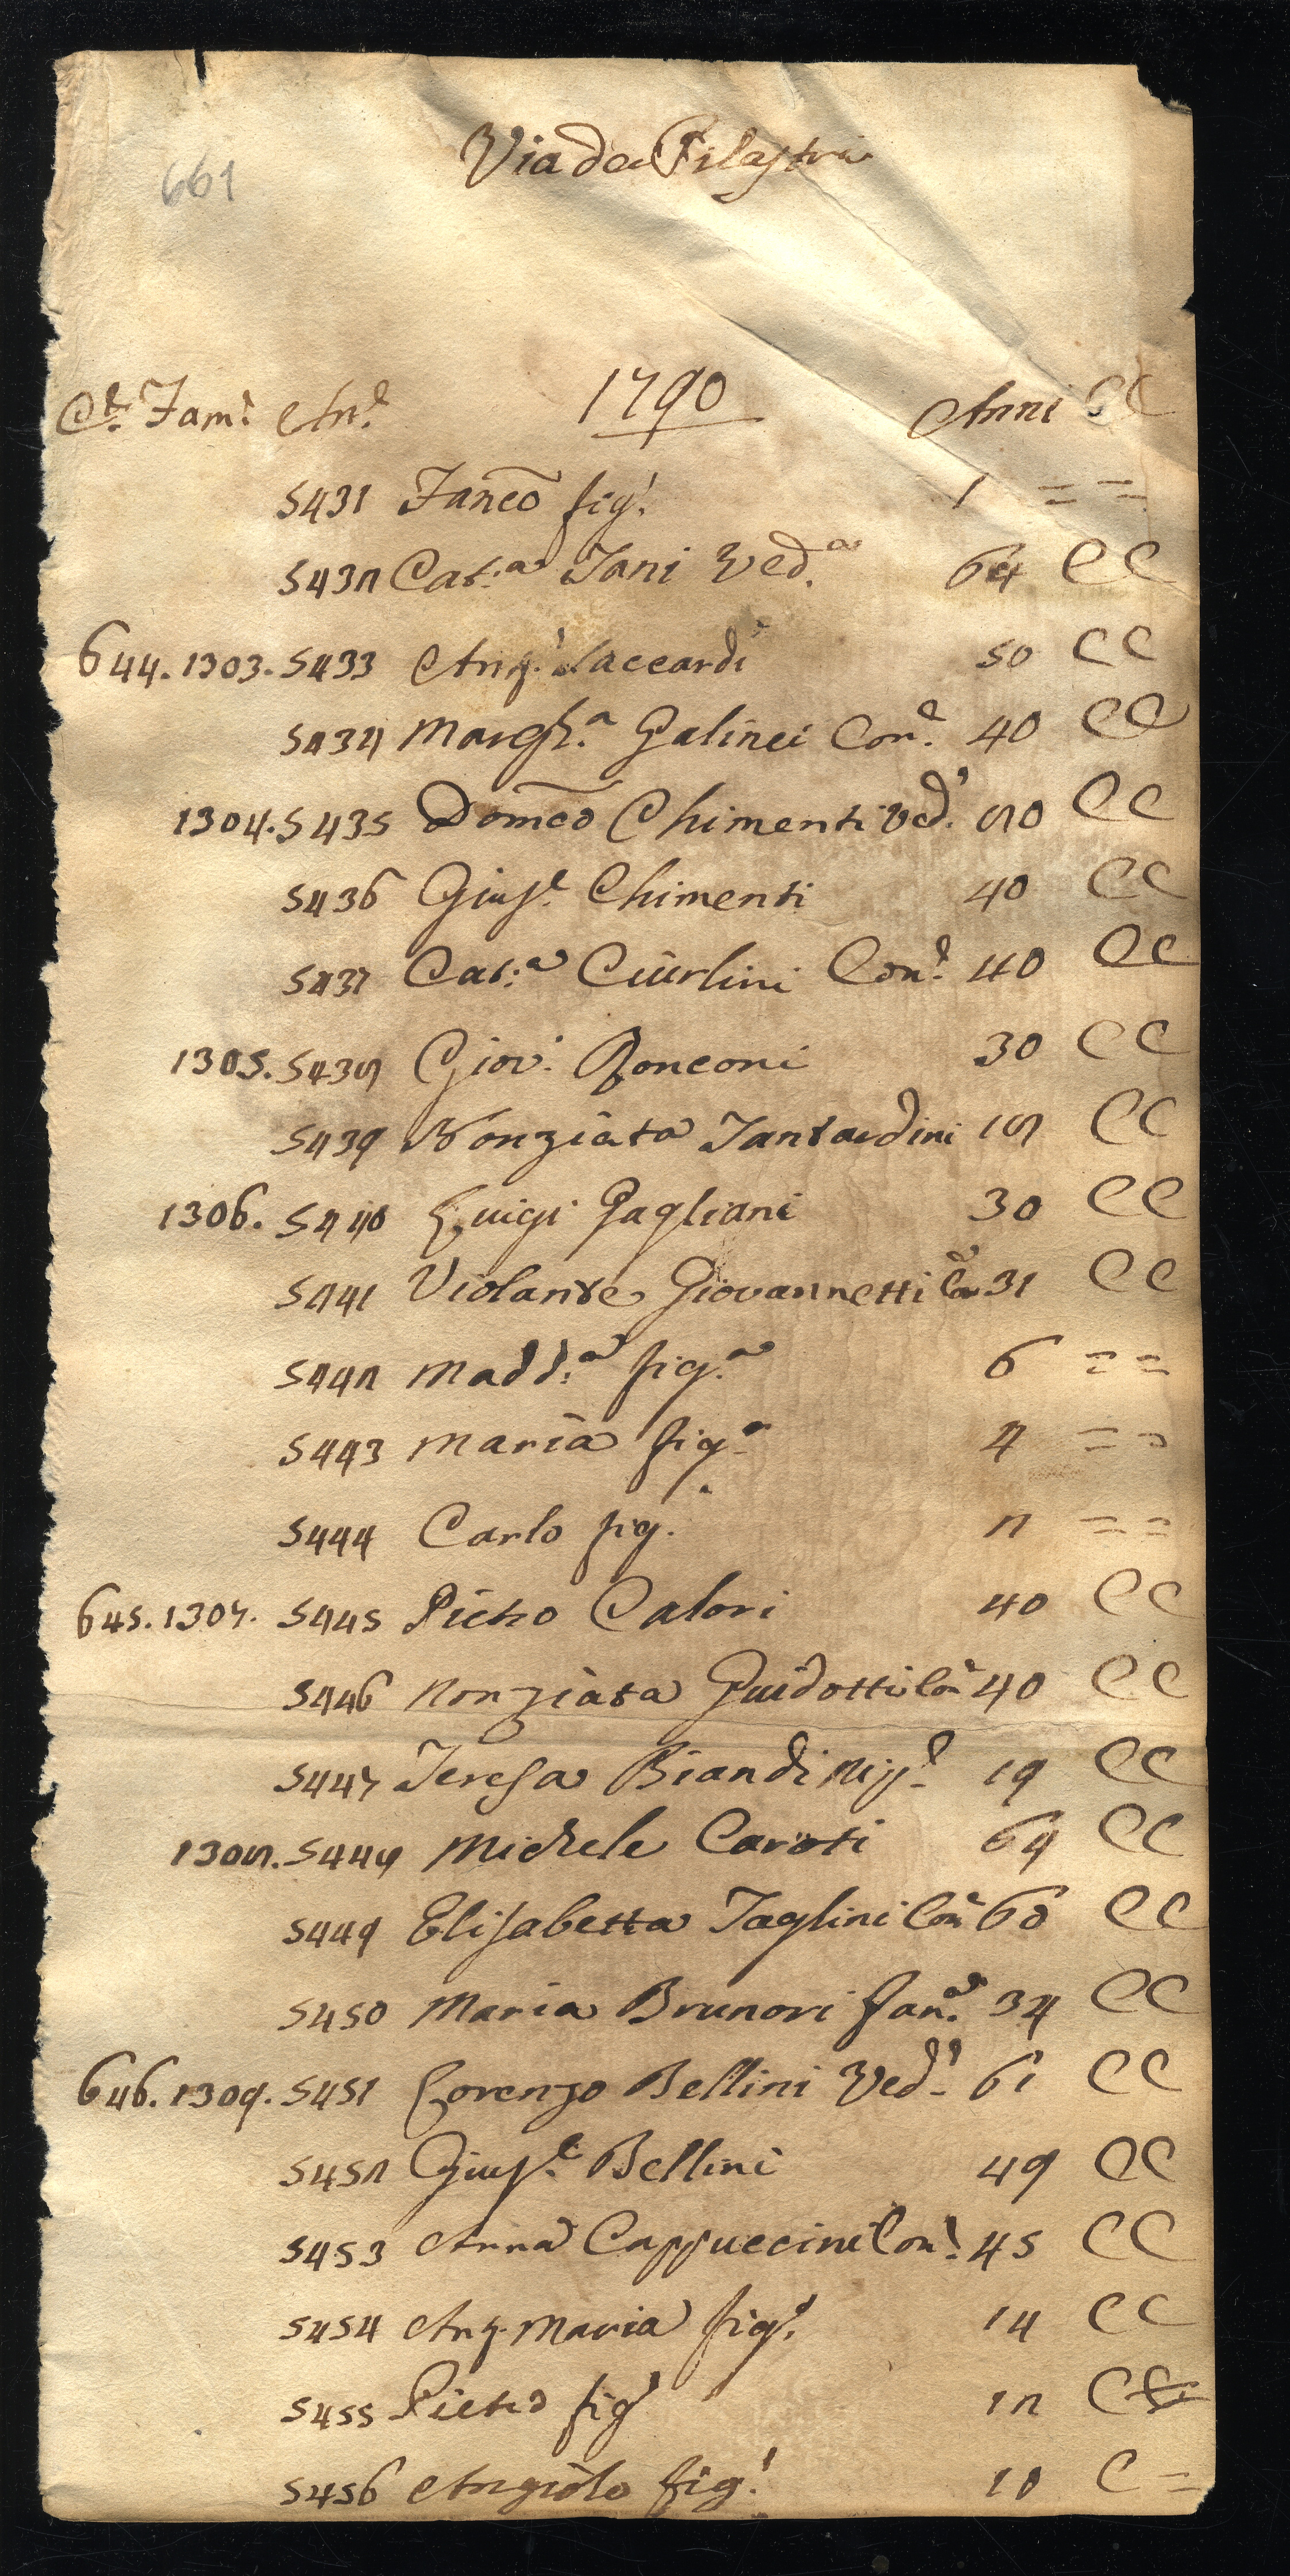 Via de Pilastri
661
Cᵉ. Famᵉ. Anᵉ. 1790 Anni CC
5431 Fancō figº. 1 = =
5432 Cat:ª Tani Ved.ª 64 CC
644. 1303. 5433 Ang.º Saccardi 50 CC
5434 Margh.ª Galinei Con.ᵉ 40 CC
1304. 5435 Domēo Chimenti Ved.º 80 CC
5436 Giusᵉ. Chimenti 40 CC
5437 Cat:ª Ciurlini Con.ᵉ 40 CC
1305. 5438 Giov. Ronconi 30 CC
5439 Nonziata Tantardini 18 CC
1306. 5440 Luigi Pagliani 30 CC
5441 Violante Giovannetti Con 31 CC
5442 Madd.ª fig.ª 6 = =
5443 Maria fig.ª 4 = =
5444 Carlo fig. 2 = =
645. 1307. 5445 Pietro Calori 40 CC
5446 Nonziata Guidotti Con 40 CC
5447 Teresa Biandi Nip.ᵉ 19 CC
1308. 5448 Michele Caroti 64 CC
5449 Elisabetta Taglini Con 60 CC
5450 Maria Brunori fan.ª 34 CC
646. 1309. 5451 Lorenzo Bellini Ved.º 61 CC
5452 Giusᵉ. Bellini 49 CC
5453 Anna Cappuccini Con.ᵉ 45 CC
5454 Ang. Maria figº. 14 CC
5455 Pietro figº 12 C =
5456 Angiolo fig.º 10 C =